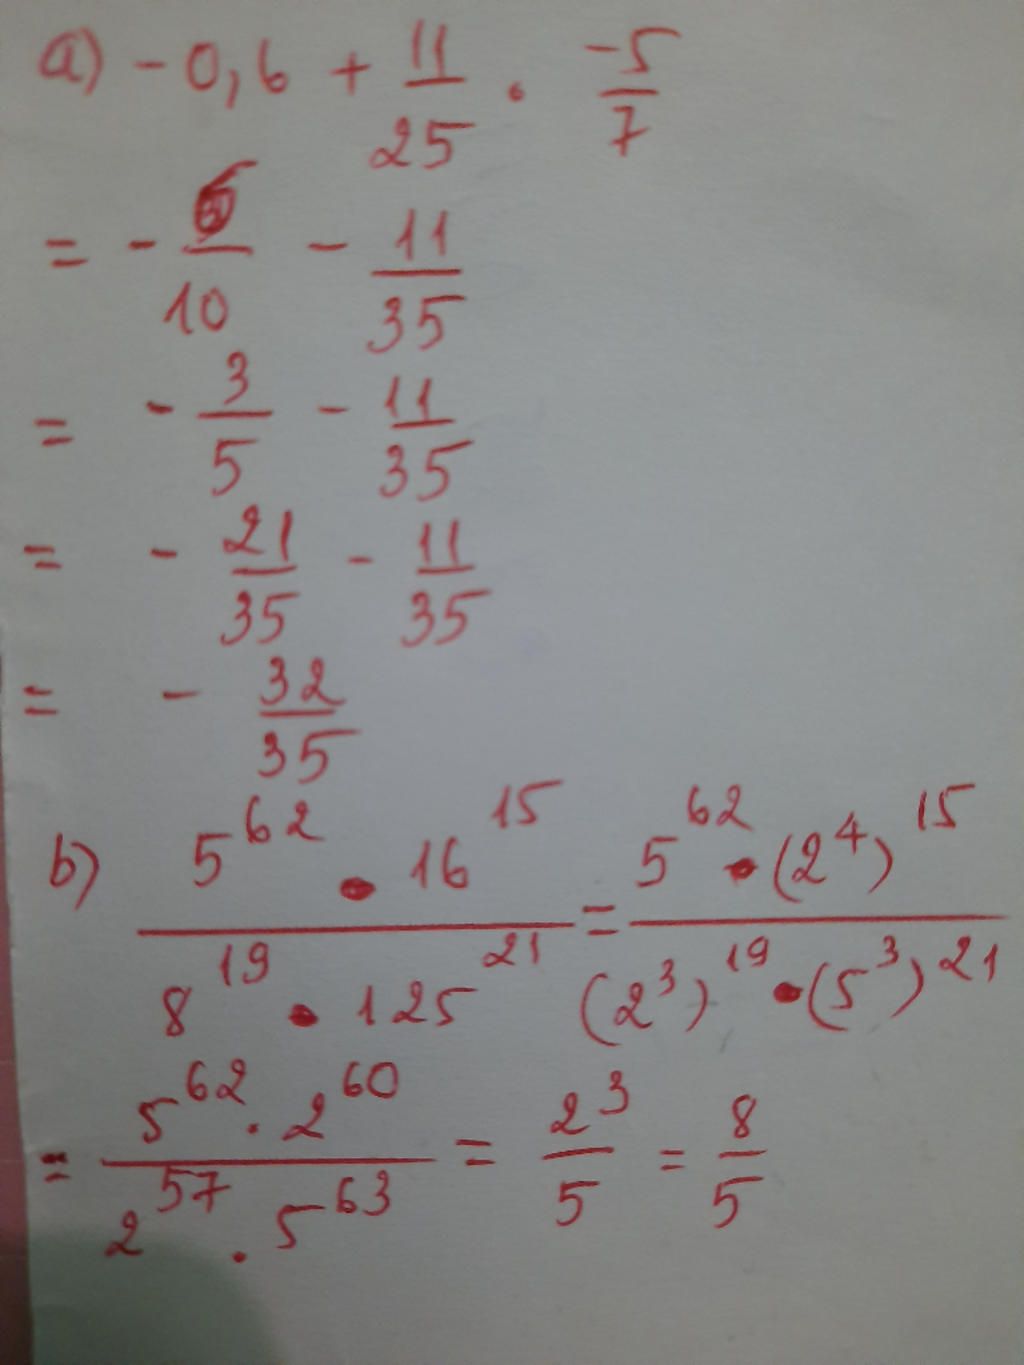 a) - 0,6 + 11/25 . -5/7
= - 6/10 - 11/35
= - 3/5 - 11/35
= - 21/35 - 11/35
= - 32/35
b) 5^62 . 16^15 / 8^19 . 125^21 = 5^62 . (2^4)^15 / (2^3)^19 . (5^3)^21
= 5^62 . 2^60 / 2^57 . 5^63 = 2^3/5 = 8/5